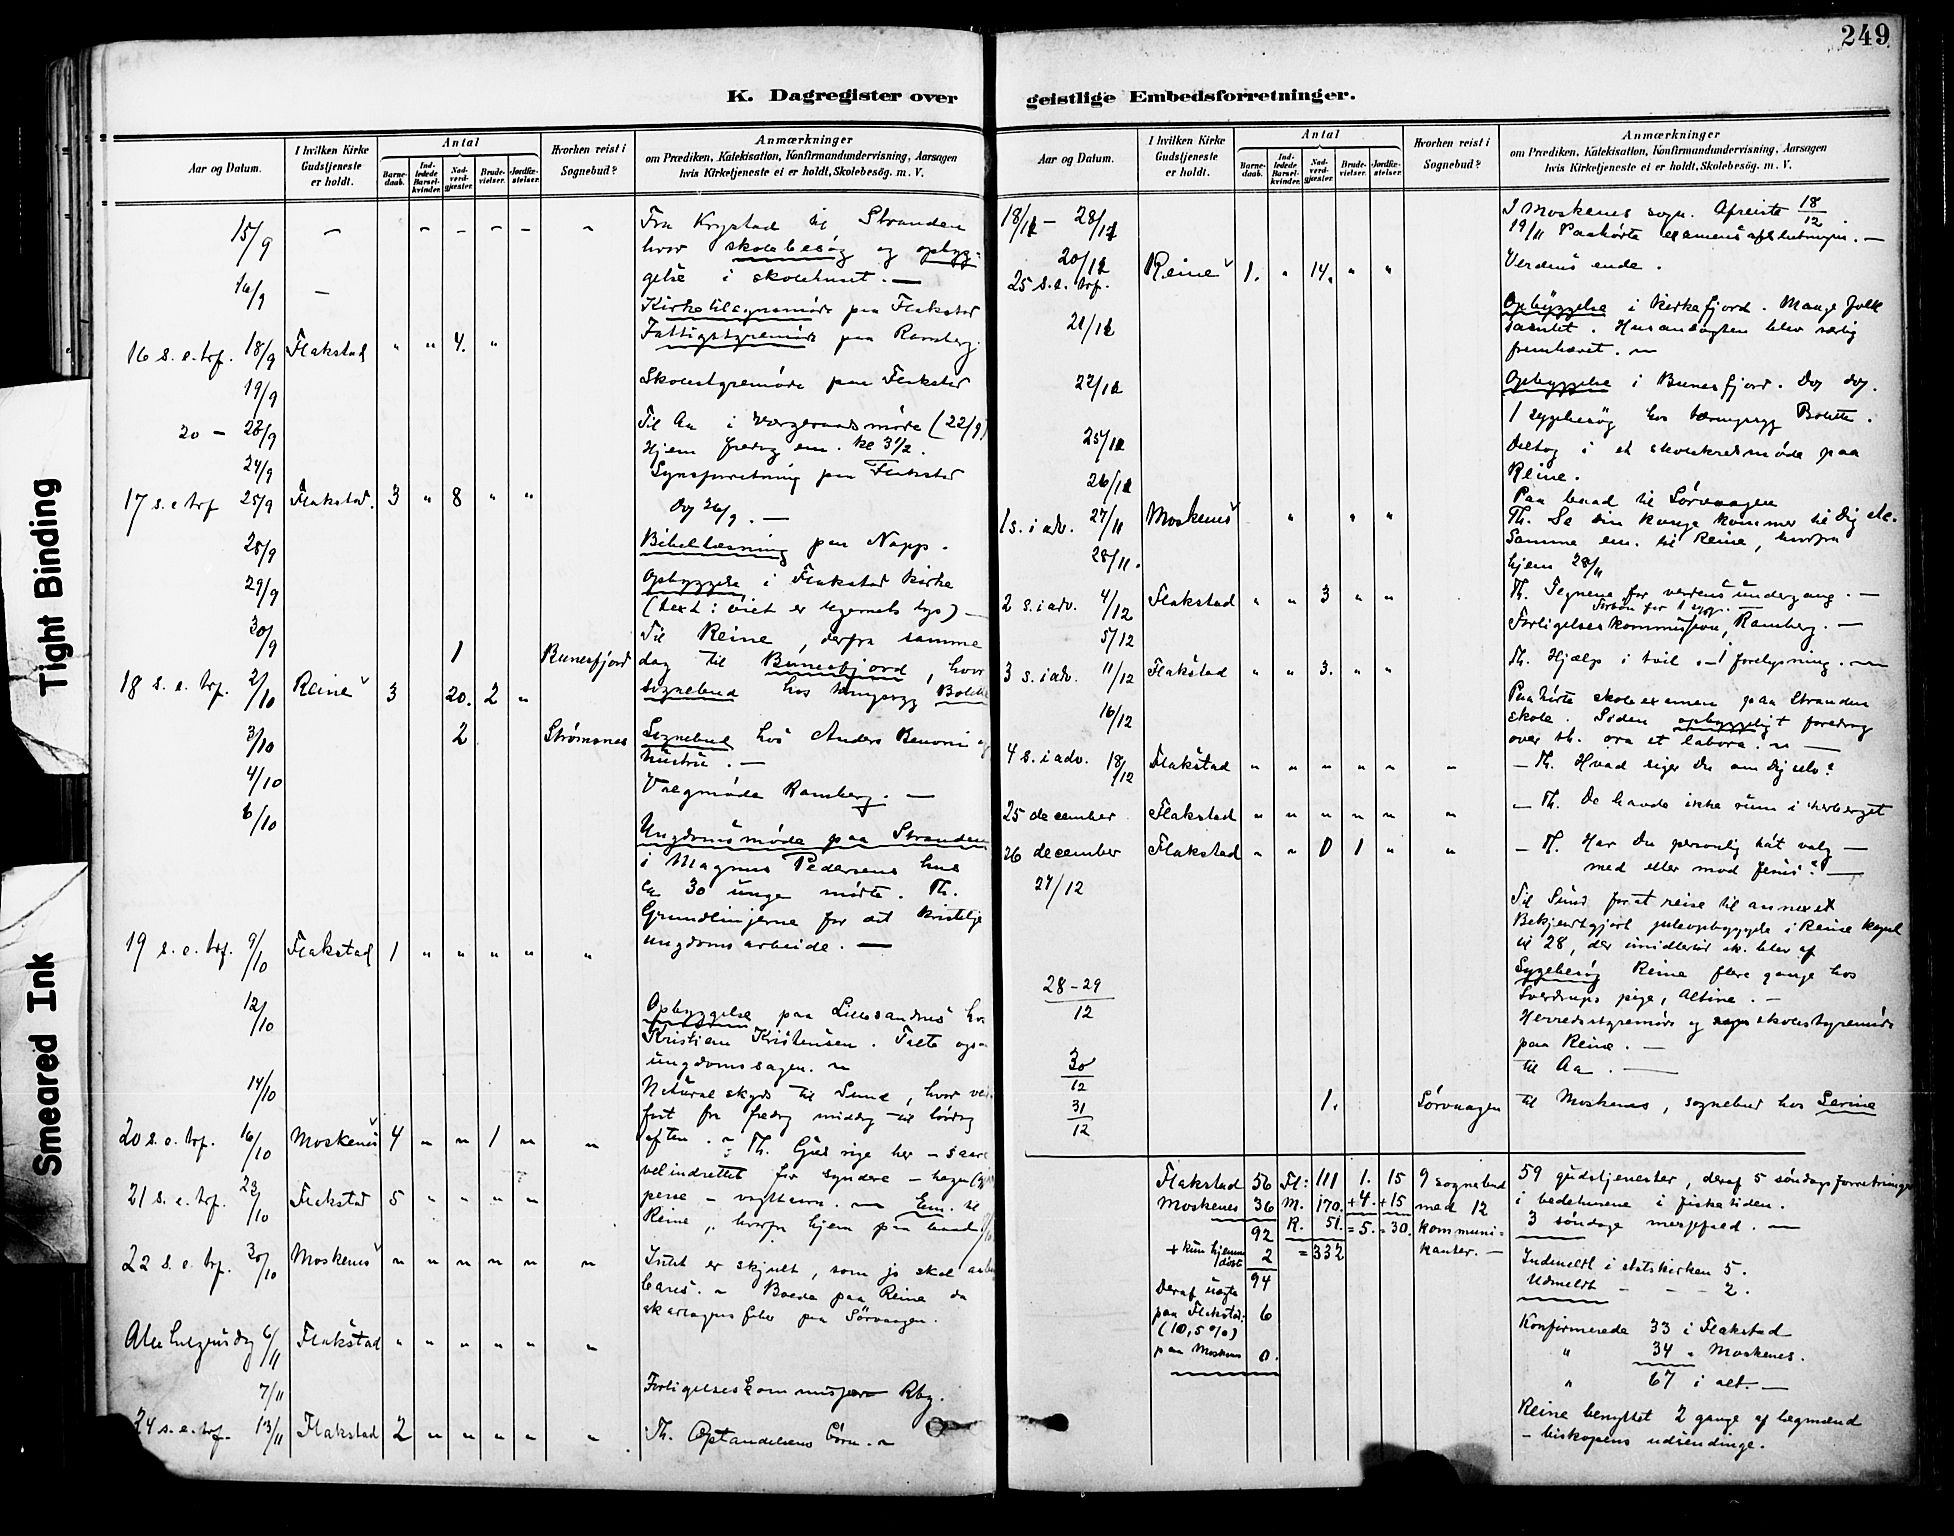 249
Tight Binding
Smeared Ink
K. Dagregister over
Aar og Datum.
I hvilken Kirke Gudstjeneste er holdt.
Antal
Barnedaab.
Indledede Barselkvinder.
Nadverdgjester.
Brudevielser.
Jordfæstelser.
Hvorhen reist i Sognebud?
Anmærkninger
om Prædiken, Katekisation, Konfirmandundervisning, Aarsagen
hvis Kirketjeneste ei er holdt, Skolebesøg. m. V.
15/9 Fra Krystad til Stranden
hvor skolebesøg og opbyg-
gelse i skolehuset. —
16/9 —
Kirketilsynsmøde paa Flakstad
Fattigstyremøde paa Ramberg.
16 s. e. trf. 18/9 Flakstad " " 4. "
19/9 Skolestyremøde paa Flakstad
20 - 23/9 Til Aa i værgeraadsmøde (22/9)
Hjem fredag em. kl 3 1/2.
24/9 Synsforretning paa Flakstad
17 s. e. trf 25/9 Flakstad. 3 " 8 " "
Og 26/9. —
28/9 Bibellæsning paa Napp.
29/9 Opbyggelse i Flakstad kirke
(text: öiet er legemets lys) —
30/9 Til Reine, derfra samme
1 Bunesfjord dag til Bunesfjord, hvor
18 s. e. trf. 2/10 Reine 3 20. 2 "
sognebud hos
3/10 2 Strømsnes Sognebud hos Anders Benoni og
hustru. —
4/10 Valgmøde Ramberg. —
6/10
Ungdomsmøde paa Stranden
i Magnus Pedersens hus
ca 30 unge mødte. Th.
Grundlinjerne for det kristelige
ungdomsarbeide. —
19 s. e. trf. 9/10 Flakstad 1 " " " " "
12/10 Opbyggelse paa Lillesandnes hos
Kristian Kristensen. Talte ogsaa
ungdomssagen.
14/10 Naturalskyds til Sund, hvor veir-
fast fra fredag middag til lørdag
aften. Th. Guds rige her - saare
20 s. e. trf. 16/10 Moskenes 4 " " 1 " "
velindrettet for syndere -
21 s. e. trf. 23/10 Flakstad 5 " " " "
Em. til
Reine, hvorfra hjem paa baad
22 s. e. trf. 30/10 Moskenes " " " " " "
Intet er skjult, som jo skal aaben-
bares. - Boede paa Reine da
skarlagensfeber paa Sørvaagen.
Alle helgensdag 6/11 Flakstad " " " " " "
7/11 Forligelseskommission Rbg.
24 s. e. trf. 13/11 Flakstad 2 " " " " "
Th. Opstandelsens börn.
geistlige Embedsforretninger.
Aar og Datum.
I hvilken Kirke Gudstjeneste er holdt.
Antal
Barnedaab.
Indledede Barselkvinder.
Nadverdgjester.
Brudevielser.
Jordfæstelser.
Hvorhen reist i Sognebud?
Anmærkninger
om Prædiken, Katekisation, Konfirmandundervisning, Aarsagen
hvis Kirketjeneste ei er holdt, Skolebesøg. m. V.
18/11 - 28/11 I Moskenes sogn. Afreiste 18/12
19/11 Paahørte examensafslutningen. —
20/11 Reine 1. " 14. " " Verdens ende.
25 s. e. trf.
21/11 Opbyggelse i Kirkefjord. Mange folk
samlet. Husandagten blev særlig
fremhævet.
22/11 Opbyggelse i Bunesfjord. Do do.
1 sygebesøg hos tæringssyg Bolette.
25/11 Deltog i et skolekredsmøde paa
Reine.
26/11 Paa baad til Sørvaagen
1 s. i adv. 27/11 Moskenes " " "
Th. Se din konge kommer til dig etc.
Samme em. til Reine, hvorfra
28/11. hjem 28/11
2 s. i adv. 4/12 Flakstad " " 3 " "
Th. Tegnene for verdens undergang. —
Forbøn for 1 syg. —
5/12 Forligelseskommission, Ramberg. —
3 s. i adv. 11/12 Flakstad " " 3. " "
Th. Hjælp i tvil - 1 forelysning.
16/12 Paahörte skoleexamen paa Stranden
skole. Siden opbyggeligt foredrag
over th. ora et labora. —
4 s. i adv. 18/12 Flakstad " " " " " "
- Th. Hvad siger du om dig selv?
25 december Flakstad " " " " " "
- Th. De havde ikke rum i herberget
26 december Flakstad " " 0 1 " "
- Th. Har du personlig tat valg —
med eller mod Jesus? —
27/12 Til Sund for at reise til annexet
Bekjendtgjort juleopbyggelse i Reine kapel
til 28, der imidlertid ik. blev af
28-29/12 Sygebesög Reine flere gange hos
Sverdrups pige, Altine. —
Herredsstyremøde og skolestyremøde
paa Reine. —
30/12 til Aa. —
31/12 1. Sörvaagen til Moskenes, sognebud hos Serine
Flakstad 56 Fl: 111 1. 15 9 sognebud
Moskenes 36 M. 170. +4. +15 med 12
92 R. 51. =5. =30. kommuni-
+ kun hjemmedøbt 2 =332 kanter. —
94
Deraf uægte
paa Flakstad: 6
(10,5%)
paa Moskenes 0.
59 gudstjenester, deraf 5 søndagsforretninger
i bedehusene i fisketiden.
3 søndage messefald. —
Indmeldt i statskirken 5.
Udmeldt - - - 2.
Konfirmerede 33 i Flakstad
" 34 " Moskenes.
" 67 i alt. —
Reine benyttet 2 gange af lægmænd
- biskopens udsendinge.